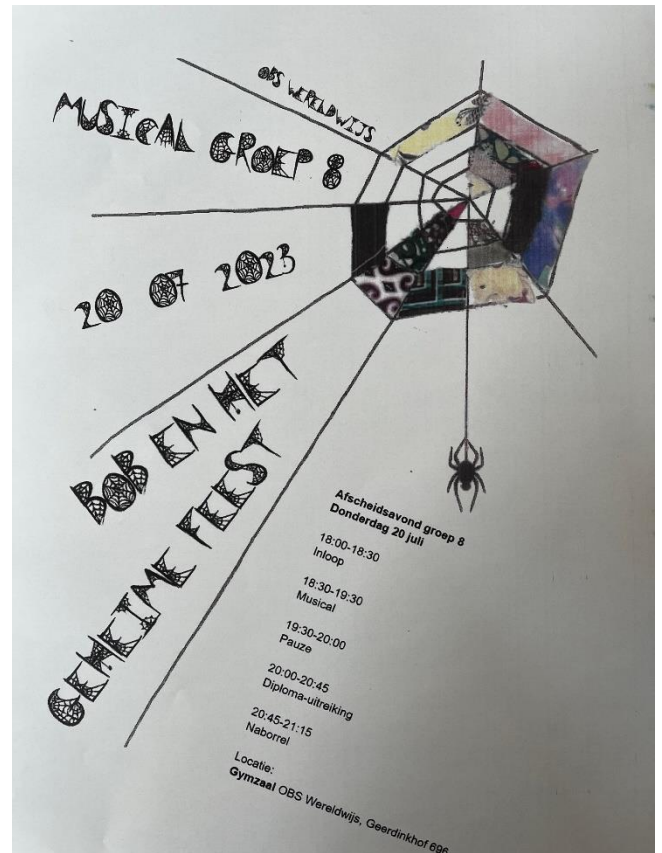 OBS WERELDWIJS
MUSICAL GROEP 8
20 07 2023
BOB EN HET
GEHEIME FEEST
Afscheidsavond groep 8
Donderdag 20 juli
18:00-18:30
Inloop
18:30-19:30
Musical
19:30-20:00
Pauze
20:00-20:45
Diploma-uitreiking
20:45-21:15
Naborrel
Locatie:
Gymzaal OBS Wereldwijs, Geerdinkhof 696